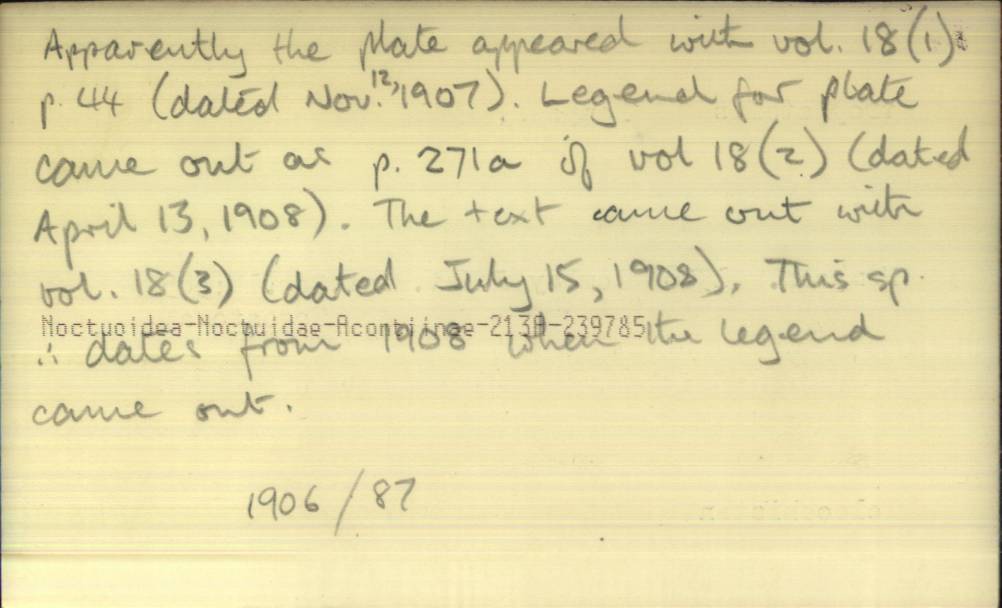 Apparently the plate appeared with vol. 18(1):
p. 44 (dated Nov. 12, 1907). Legend for plate
came out as p. 271a of vol 18(2) (dated
April 13, 1908). The text came out with
vol. 18(3) (dated July 15, 1908). This sp.
Noctuoidea-Noctuidae-Acontiinae-2139-239785
∴ dates from 1908 when the legend
came out.
1906/87